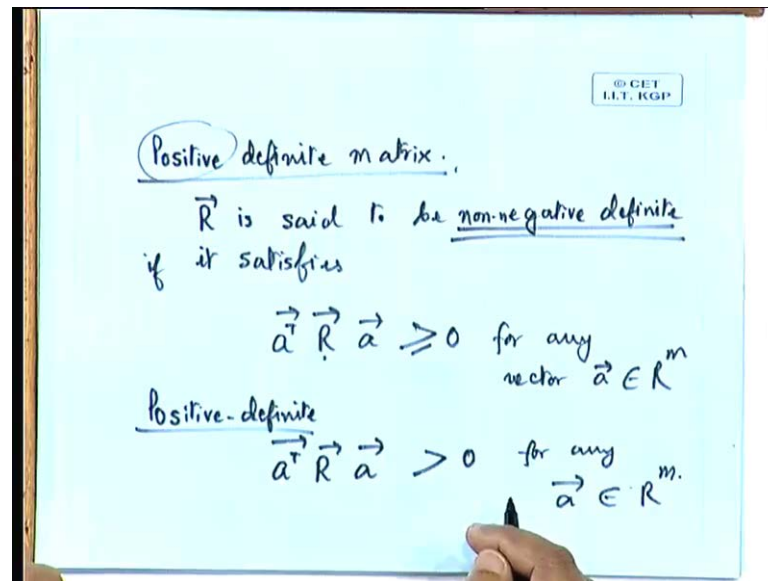 © CET
I.I.T. KGP
Positive definite matrix.
R⃗ is said to be non-negative definite
if it satisfies
a⃗ᵀ R⃗ a⃗ ≥ 0 for any
vector a⃗ ∈ Rᵐ
Positive-definite
a⃗ᵀ R⃗ a⃗ > 0 for any
a⃗ ∈ Rᵐ.